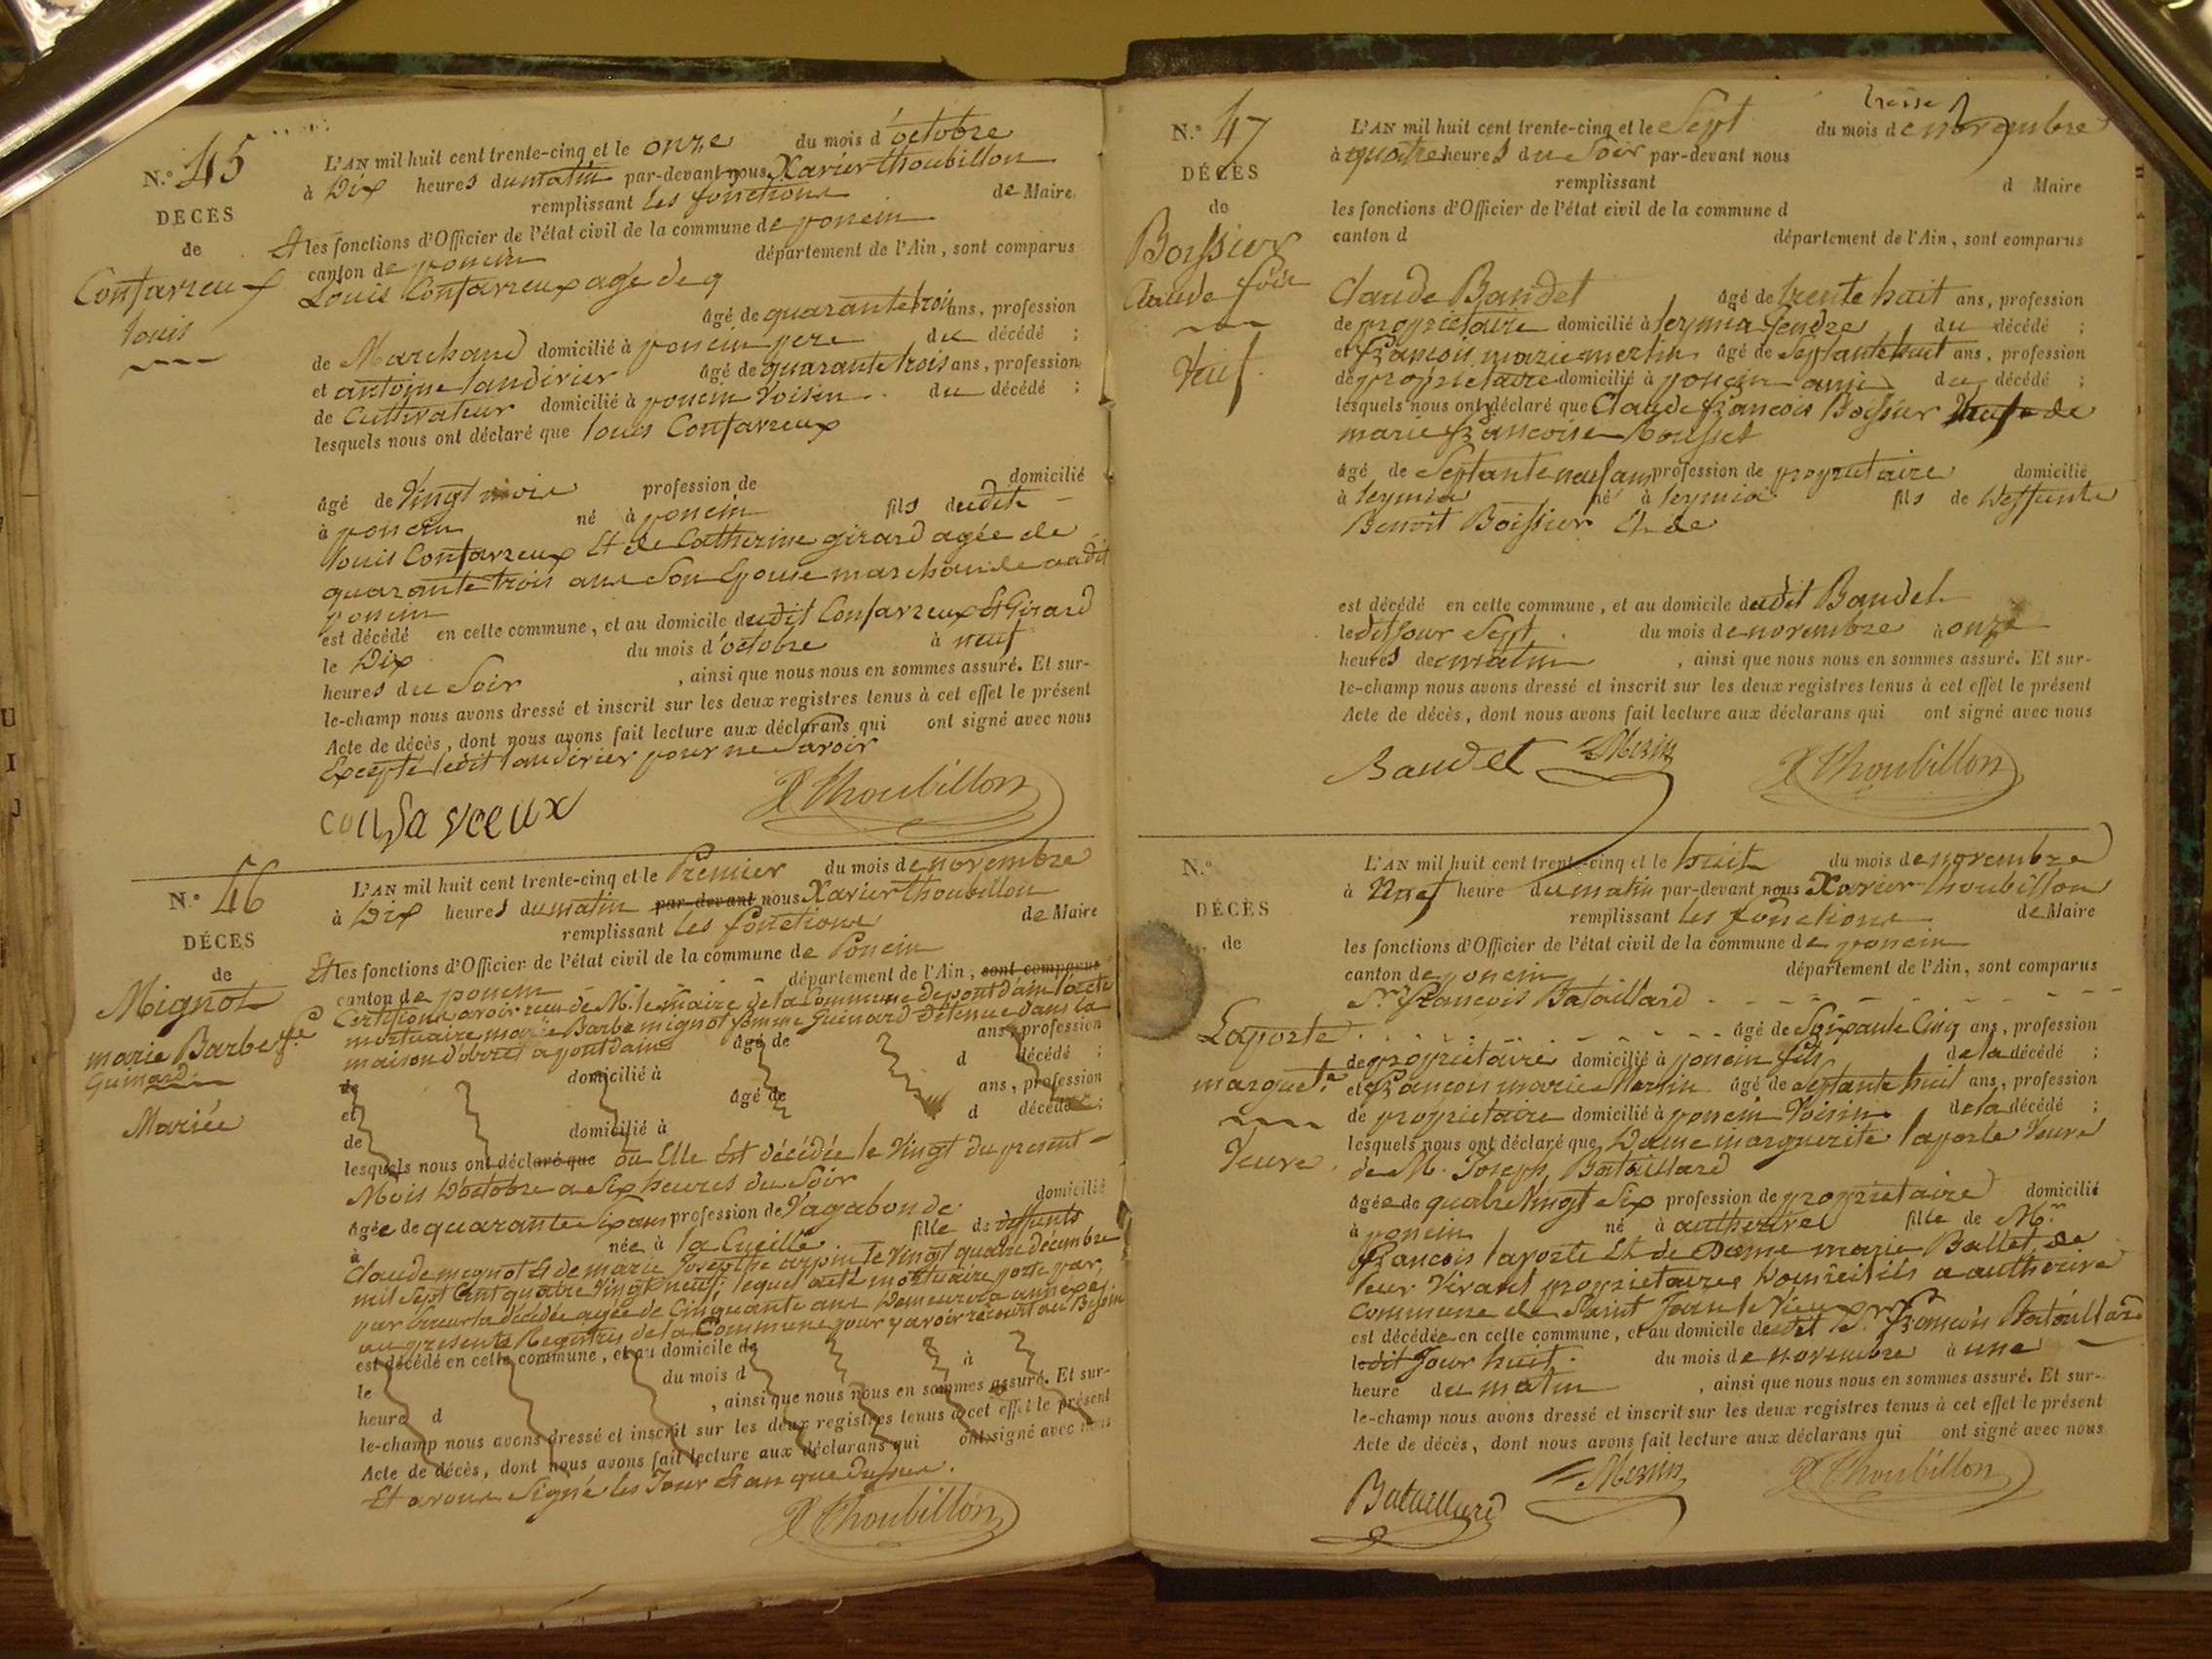 N.° 45
DÉCÈS
de
Confavreux
louis
L'AN mil huit cent trente-cinq et le onze du mois d'octobre
à Dix heures du matin par-devant nous Xavier thoubillon
remplissant les fonctions de Maire
Et les fonctions d'Officier de l'état civil de la commune de poncin
canton de poncin département de l'Ain, sont comparus
Louis Confavreux agé de q
âgé de quarante trois ans, profession
de Marchand domicilié à poncin pere du décédé ;
et antoine landirier âgé de quarante trois ans, profession
de Cultivateur domicilié à poncin Voisin du décédé ;
lesquels nous ont déclaré que louis Confavreux
âgé de Vingt mois profession de domicilié
à poncin né à poncin fils dudit
louis Confavreux Et de Catherine girard agée de
quarante trois ans Son Epouse marchande audit
poncin
est décédé en cette commune, et au domicile dudit Confavreux Et Girard
le Dix du mois d'octobre à neuf
heures du Soir , ainsi que nous nous en sommes assuré. Et sur-
le-champ nous avons dressé et inscrit sur les deux registres tenus à cet effet le présent
Acte de décès, dont nous avons fait lecture aux déclarans qui ont signé avec nous
Excepté ledit landirier pour ne Savoir
X Thoubillon
N.° 46
DÉCES
de
Mignot
marie Barbe fe
Guinard
Mariée
L'AN mil huit cent trente-cinq et le Premier du mois de novembre
à Dix heures du matin par-devant nous Xavier thoubillon
remplissant les fonctions de Maire
Et les fonctions d'Officier de l'état civil de la commune de Poncin
canton de poncin département de l'Ain, sont comparus
Certifions avoir reçu de M. le maire de la Commune de pont d'ain l'acte
mortuaire marie Barbe mignot femme Guinard détenue dans la
maison d'arret a pont d'ain âgé de ans, profession
de domicilié à d décédé ;
et âgé de ans, profession
de domicilié à d décédé ;
lesquels nous ont déclaré que ou Elle Est décédée le Vingt du present
Mois D'octobre a Six heures du Soir
âgée de quarante six ans profession de Vagabonde domicilié
à née à la Cueille fille de deffunts
Claude mignot Et de marie Josephte arpin le vingt quatre décembre
mil Sept Cent quatre Vingt neuf, lequel acte mortuaire porte par
par Erreur la décédée agée de Cinquante ans Demeurera annexé
au presents Registres de la Commune pour y avoir recourt au Besoin
est décédé en cette commune, et au domicile de
le du mois d à
heure d , ainsi que nous nous en sommes assuré. Et sur-
le-champ nous avons dressé et inscrit sur les deux registres tenus à cet effet le présent
Acte de décès, dont nous avons fait lecture aux déclarans qui ont signé avec nous
Et avons Signé les Jour Et an que dessus.
X Thoubillon
N.° 47
DÉCÈS
de
Boissier
Claude fois
Veuf
L'AN mil huit cent trente-cinq et le Sept du mois de novembre
à quatre heures du Soir par-devant nous
remplissant d Maire
les fonctions d'Officier de l'état civil de la commune d
canton d département de l'Ain, sont comparus
Claude Baudet âgé de trente huit ans, profession
de proprietaire domicilié à leymia Gendre du décédé ;
et francois marie merlin âgé de Septante huit ans, profession
de proprietaire domicilié à poncin ami du décédé ;
lesquels nous ont déclaré que Claude francois Boissier Veuf de
marie francoise Rousset
âgé de Septante neuf ans profession de proprietaire domicilié
à leymia né à leymia fils de Deffunte
Benoit Boissier Et de
est décédé en cette commune, et au domicile dudit Baudet
ledit Jour Sept du mois de novembre à onze
heures du matin , ainsi que nous nous en sommes assuré. Et sur-
le-champ nous avons dressé et inscrit sur les deux registres tenus à cet effet le présent
Acte de décès, dont nous avons fait lecture aux déclarans qui ont signé avec nous
Baudet X Thoubillon
N.°
DÉCÈS
de
Laporte
marguerite
Veuve
L'AN mil huit cent trente-cinq et le huit du mois de novembre
à heure du matin par-devant nous Xavier thoubillon
remplissant les fonctions de Maire
les fonctions d'Officier de l'état civil de la commune de poncin
canton de poncin département de l'Ain, sont comparus
Sr. francois Bataillard
âgé de Soixante Cinq ans, profession
de proprietaire domicilié à poncin fils de la décédé ;
et francois marie Merlin âgé de Septante huit ans, profession
de proprietaire domicilié à poncin Voisin de la décédé ;
lesquels nous ont déclaré que Dame marguerite laporte Veuve
de M. Joseph Bataillard
âgée de quatre Vingt Six profession de proprietaire domicilié
à poncin né à autherive fille de Mr.
francois laporte Et de Dame marie Ballet de
leur Vivant proprietaires Domiciliés a autherive
Commune de Saint Jean le Vieux
est décédée en cette commune, et au domicile dudit Sr. francois Bataillard
ledit Jour huit du mois de novembre à une
heure du matin , ainsi que nous nous en sommes assuré. Et sur-
le-champ nous avons dressé et inscrit sur les deux registres tenus à cet effet le présent
Acte de décès, dont nous avons fait lecture aux déclarans qui ont signé avec nous
Bataillard X Thoubillon